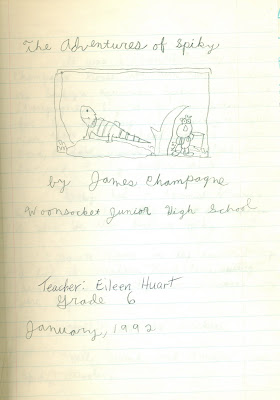 The Adventures of Spiky
by James Champagne
Woonsocket Junior High School
Teacher: Eileen Huart
Grade 6
January, 1992